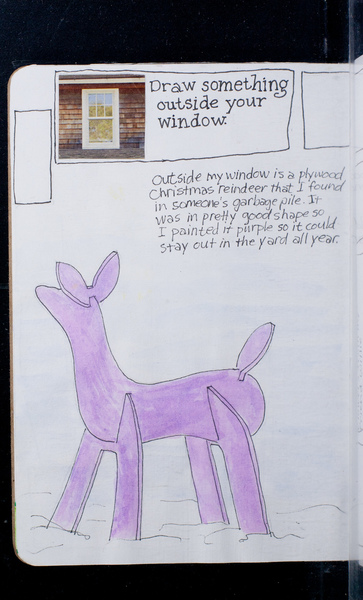 Draw something
outside your
window.
Outside my window is a plywood
Christmas reindeer that I found
in someone's garbage pile. It
was in pretty good shape so
I painted it purple so it could
stay out in the yard all year.